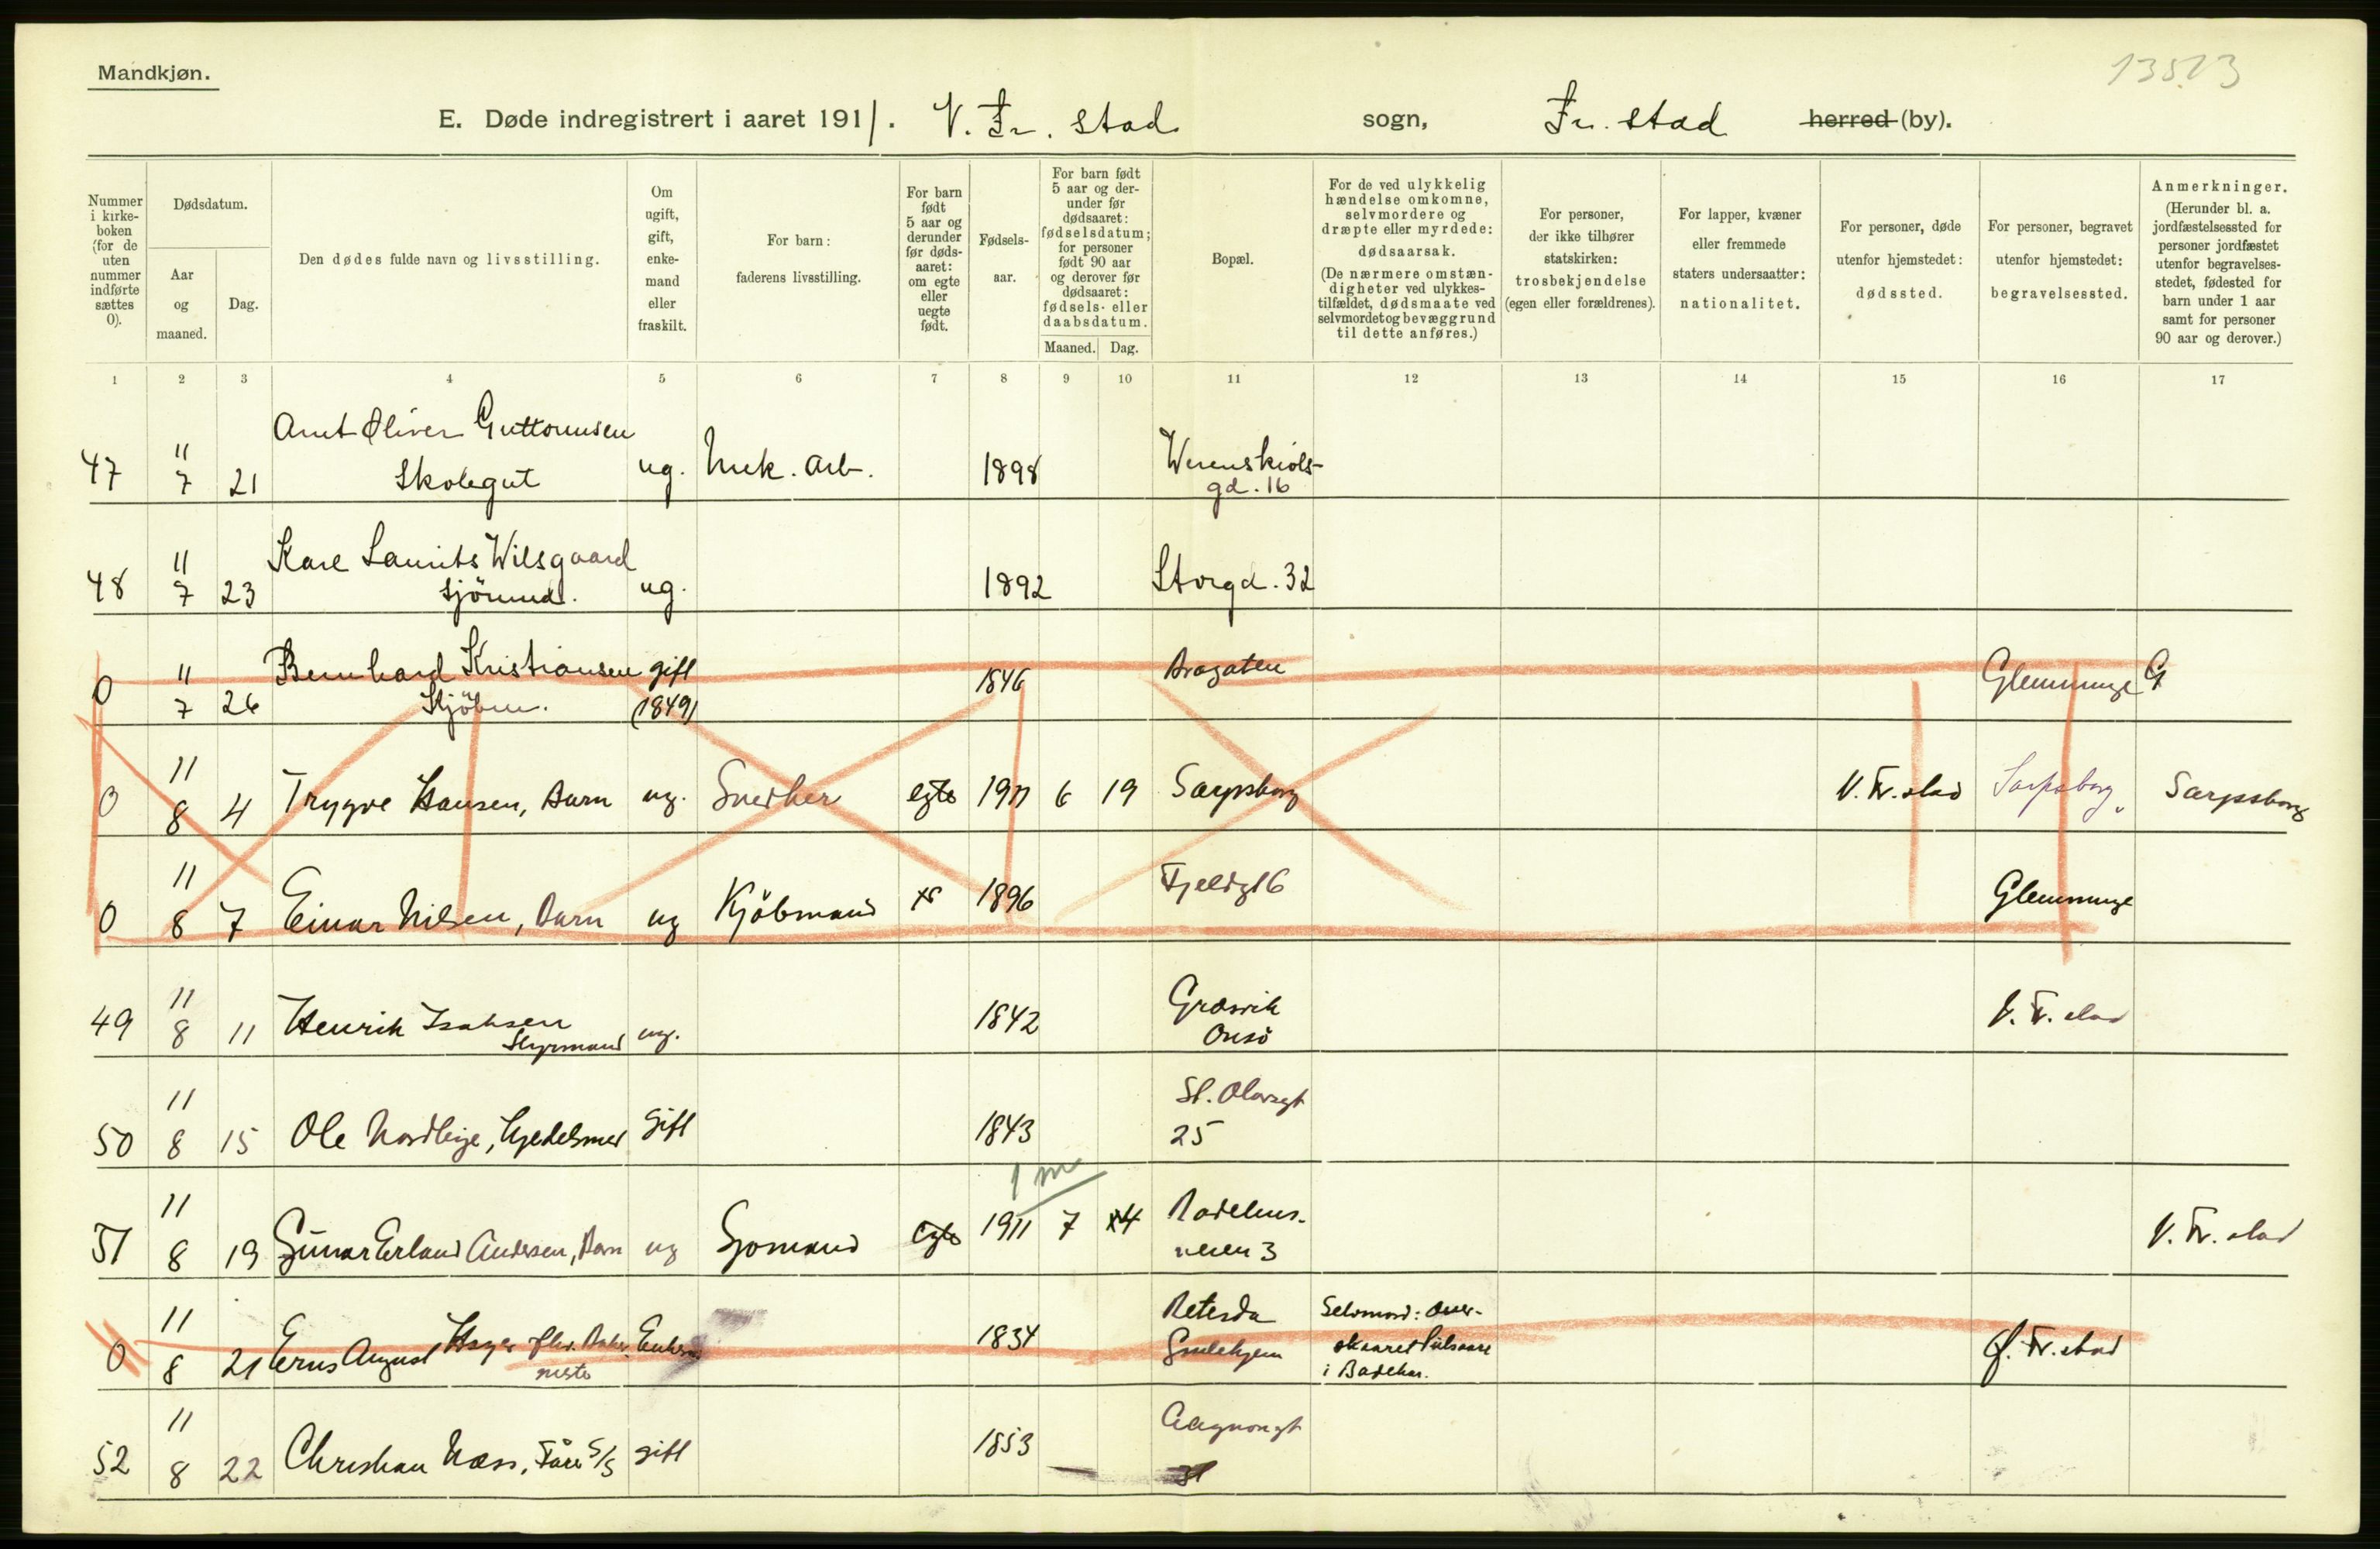 Mandkjøn.
13513
E. Døde indregistrert i aaret 1911. V. Fr. stad sogn, Fr. stad herred (by).
Nummer i kirkeboken (for de uten nummer indførte sættes 0).
Dødsdatum.
Aar og maaned.
Dag.
Den dødes fulde navn og livsstilling.
Om ugift, gift, enkemand eller fraskilt.
For barn: faderens livsstilling.
For barn født 5 aar og derunder før dødsaaret: om egte eller uegte født.
Fødselsaar.
For barn født 5 aar og derunder før dødsaaret: fødselsdatum; for personer født 90 aar og derover før dødsaaret: fødsels- eller daabsdatum.
Maaned. Dag.
Bopæl.
For de ved ulykkelig hændelse omkomne, selvmordere og dræpte eller myrdede: dødsaarsak. (De nærmere omstændigheter ved ulykkestilfældet, dødsmaate ved selvmordet og bevæggrund til dette anføres.)
For personer, der ikke tilhører statskirken: trosbekjendelse (egen eller forældrenes).
For lapper, kvæner eller fremmede staters undersaatter: nationalitet.
For personer, døde utenfor hjemstedet: dødssted.
For personer, begravet utenfor hjemstedet: begravelsessted.
Anmerkninger. (Herunder bl. a. jordfæstelsessted for personer jordfæstet utenfor begravelsesstedet, fødested for barn under 1 aar samt for personer 90 aar og derover.)
1 2 3 4 5 6 7 8 9 10 11 12 13 14 15 16 17
47 11 7 21 Arnt Oliver Guttormsen Skolegut ug. Mek. Arb. 1898 Werenskiolsgd. 16
48 11 7 23 Karl Laurits Wilsgaard Sjömd. ug. 1892 Storgd. 32
0 11 7 26 Bernhard Kristiansen Kjöbm. gift (1849) 1846 Glemminge G
0 11 8 4 Trygve Hansen, Barn ug. Snedker egte 1911 6 19 Sarpsborg V. Fr. stad Sarpsborg Sarpsborg
0 11 8 7 Einar Nilsen, Barn ug Kjöbmand 1896 Fjeldgt 6 Glemminge
49 11 8 11 Henrik Isaksen Styrmand ug. 1842 Græsvik Onsö V. Fr. stad
50 11 8 15 Ole Nordleye, gift 1843 St. Olavsgt 25
1 m
51 11 8 19 Gunar Erland Andersen, Barn ug Sjomand egte 1911 7 4 Radehusveien 3 V. Fr. stad
0 11 8 21 August 1834 Selvmord: Overskaaret Pulsaare i Badekar. Ø. Fr. stad
52 11 8 22 Christian Næss, gift 1853 31